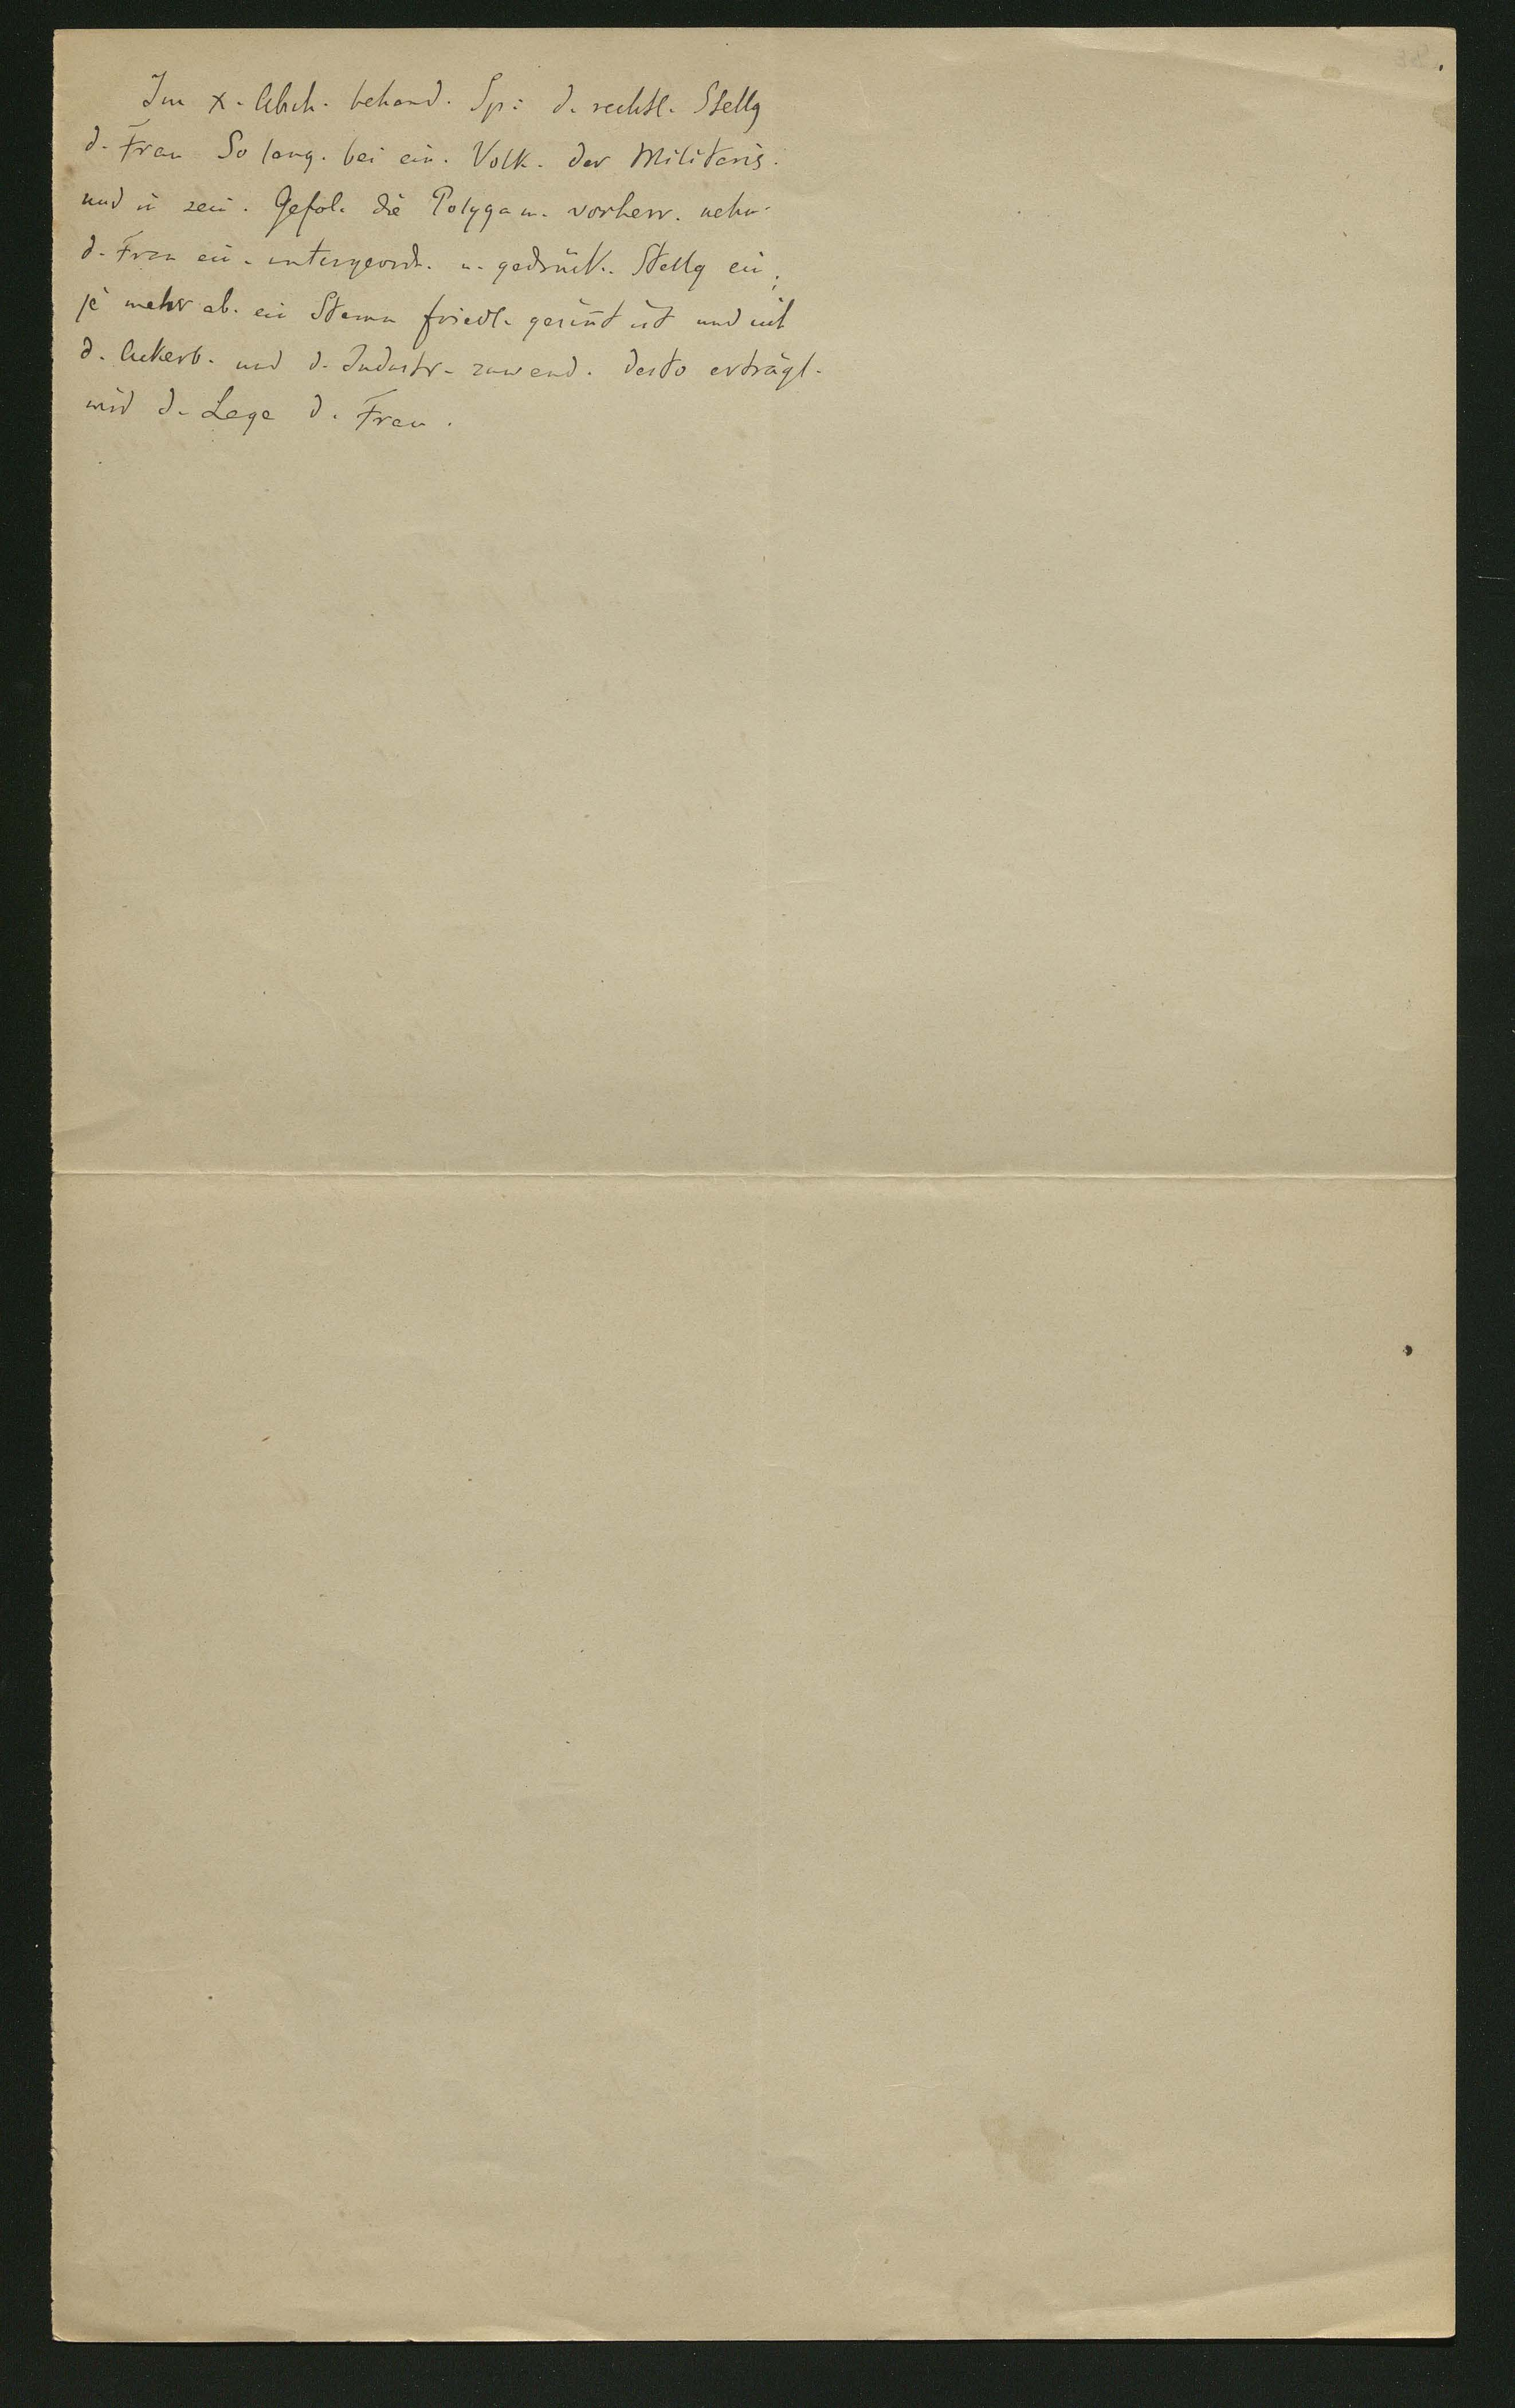 Im X. Absch. behand. Sp: d. rechtl. Stellg
d. Frau So lang. bei ein. Volk. der Militaris.
und in sein. Gefol. die Polygam. vorherr. nehm.
d. Frau ein. untergeord. u. gedrück. Stellg ein;
je mehr ab. ein Stamm friedl. gesint ist und sich
d. Ackerb. und d. Industr. zuwend. desto erträgl.
wird d. Lage d. Frau.